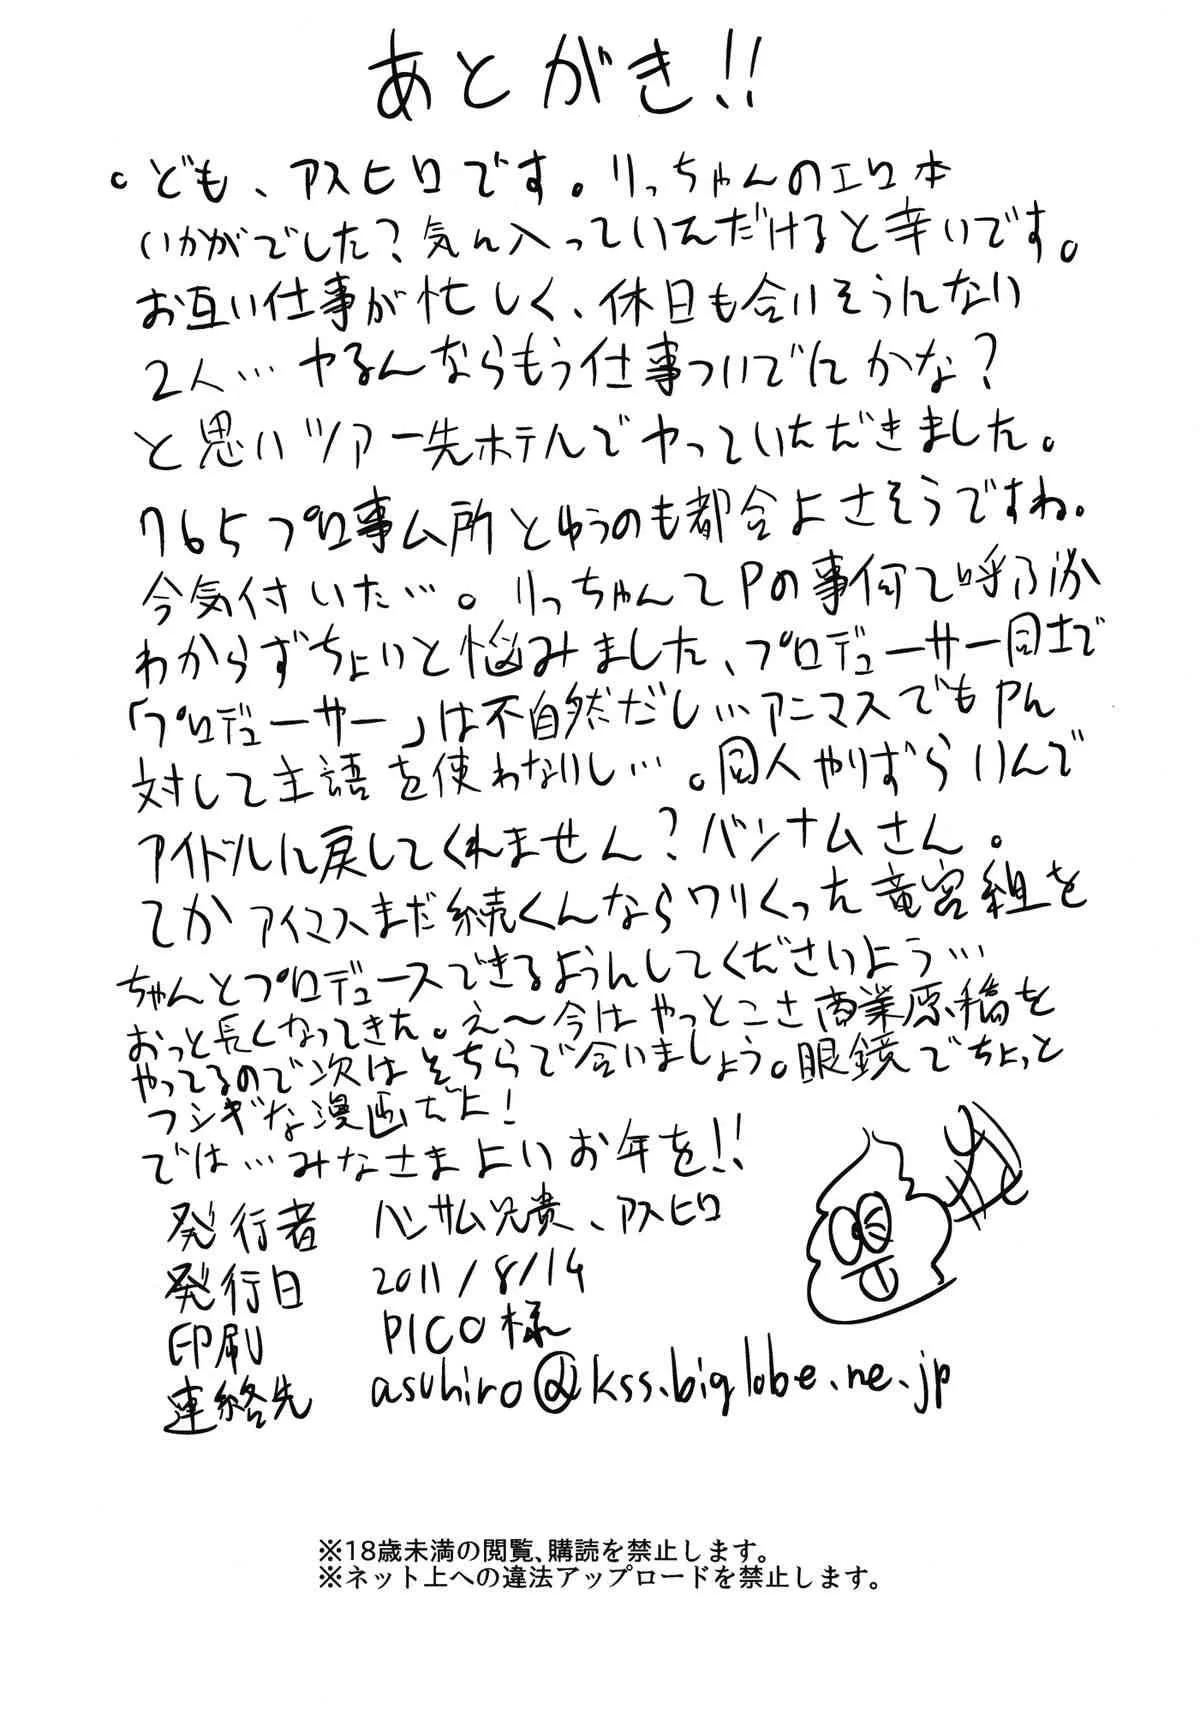 あとがき!!
。ども、アスヒロです。りっちゃんのエロ本
いかがでした?気に入っていただけると幸いです。
お互い仕事が忙しく、休日も合いそうにない
2人…ヤるんならもう仕事ついでにかな?
と思いツアー先ホテルでヤっていただきました。
765プロ事ム所とゆうのも都合よさそうですね。
今気付いた…。りっちゃんてPの事何て呼ぶか
わからずちょいと悩みました、プロデューサー同士で
「プロデューサー」は不自然だし…アニマスでもやん
対して主語を使わないし…。同人やりずらいんで
アイドルに戻してくれません?バンナムさん。
てかアイマスまだ続くんならワリくった竜宮組を
ちゃんとプロデュースできるようにしてくださいよう…
おっと長くなってきた。え〜今はやっとこさ商業原稿を
やってるので次はそちらで会いましょう。眼鏡でちょっと
フシギな漫画だよ!
では…みなさまよいお年を!!
発行者 ハンサム兄貴、アスヒロ
発行日 2011/8/14
印刷 PICO様
連絡先 asuhiro@kss.biglobe.ne.jp
※18歳未満の閲覧、購読を禁止します。
※ネット上への違法アップロードを禁止します。